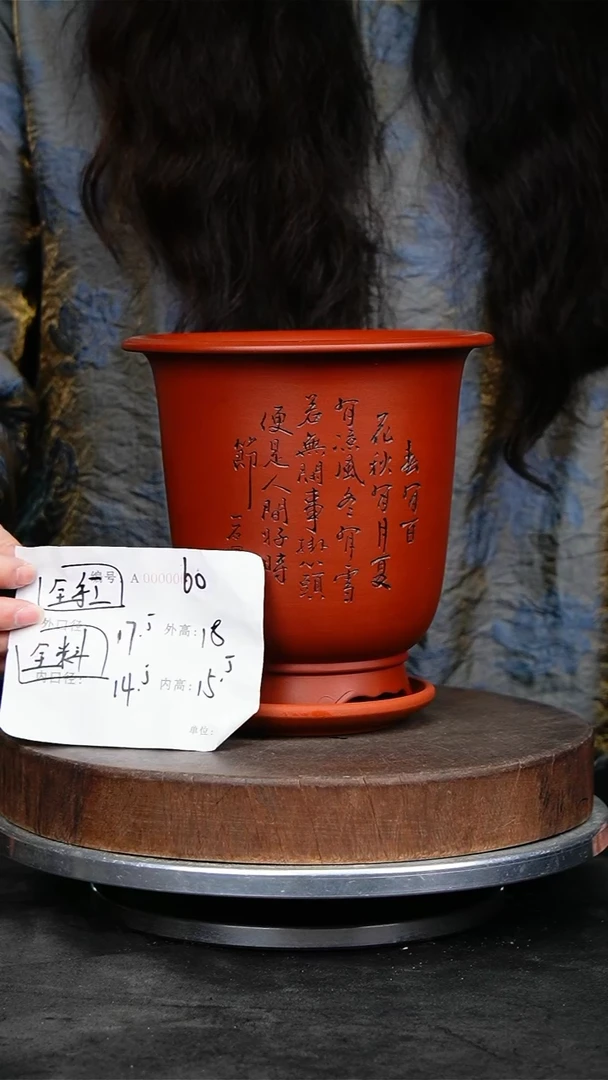 春有百
花秋有月夏
有凉風冬有雪
若無閒事掛心頭
便是人間好時
節
編号：A000000 60
全手工
外口径：17.5 外高：18
全料
内口径：14.5 内高：15.5
单位：